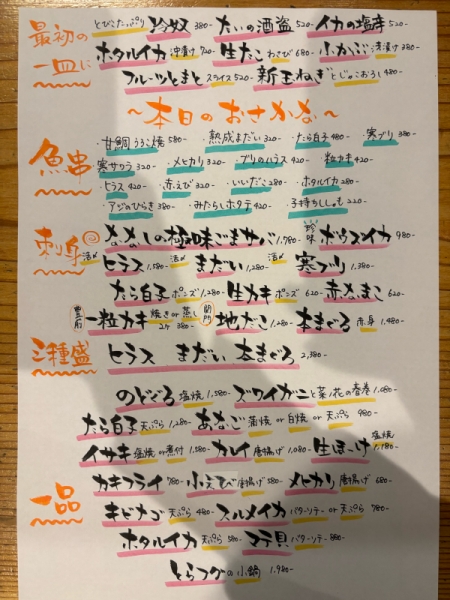 最初の一皿に
とびこたっぷり 冷奴 380- たいの酒盗 520- イカの塩辛 520-
ホタルイカ 沖漬け 720 生たこ わさび 680- ふかぶ 浅漬け 380-
フルーツとまと スライス 520- 新玉ねぎ とじゃこおろし 480-
〜本日のおさかな〜
魚串
・甘鯛うろこ焼 580- ・熟成まだい 320- ・たら白子 480- ・寒ブリ 380-
寒サワラ 320- ・メヒカリ 320- ・ブリのハラス 420- ・粒カキ 420-
・ヒラス 420- ・赤えび 320- ・いいだこ 280- ・ホタルイカ 280-
・アジのひらき 380- ・みたらしホタテ 420- ・子持ちししゃも 220-
刺身
極味ごまサバ 1,780- 珍味 ホウズイカ 980-
活〆 ヒラス 1,580- 活〆 まだい 1,280- 寒ブリ 1,380-
たら白子 ポンズ 1,280- 生カキ ポンズ 620- 赤なまこ 620-
豊前 一粒カキ 焼き or 蒸し 2ケ 380- 関門 地だこ 1,280- 本まぐろ 赤身 1,480-
三種盛
ヒラス まだい 本まぐろ 2,380-
一品
のどぐろ 塩焼 1,580- ズワイガニと菜ノ花の春巻 1,080-
たら白子 天ぷら 1,280- あなご 蒲焼 or 白焼 or 天ぷら 980-
イサキ 塩焼 or 煮付 1,580- カレイ 唐揚げ 1,080- 生ほっけ 塩焼 1,180-
カキフライ 780- 小えび 唐揚げ 580- メヒカリ 唐揚げ 680-
キビナゴ 天ぷら 480- スルメイカ バターソテー or 天ぷら 780-
ホタルイカ 天ぷら 580- コテ貝 バターソテー 880-
とらフグの小鍋 1,980-